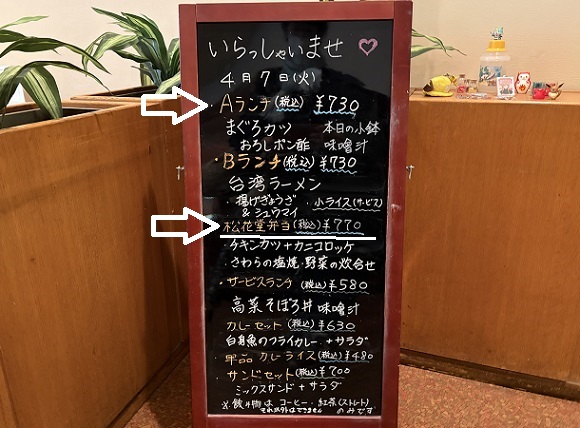 いらっしゃいませ
4月7日(火)
・Aランチ(税込)¥730
まぐろカツ 本日の小鉢
おろしポン酢 味噌汁
・Bランチ(税込)¥730
台湾ラーメン
・揚げぎょうざ ・小ライス(サービス)
&シュウマイ
松花堂弁当(税込)¥770
・チキンカツ+カニコロッケ
・さわらの塩焼・野菜の炊合せ
・サービスランチ(税込)¥580
高菜そぼろ丼 味噌汁
カレーセット(税込)¥630
白身魚のフライカレー+サラダ
単品カレーライス(税込)¥480
サンドセット(税込)¥700
ミックスサンド+サラダ
※飲み物はコーヒー・紅茶(ストレート)
それ以外はできません のみです